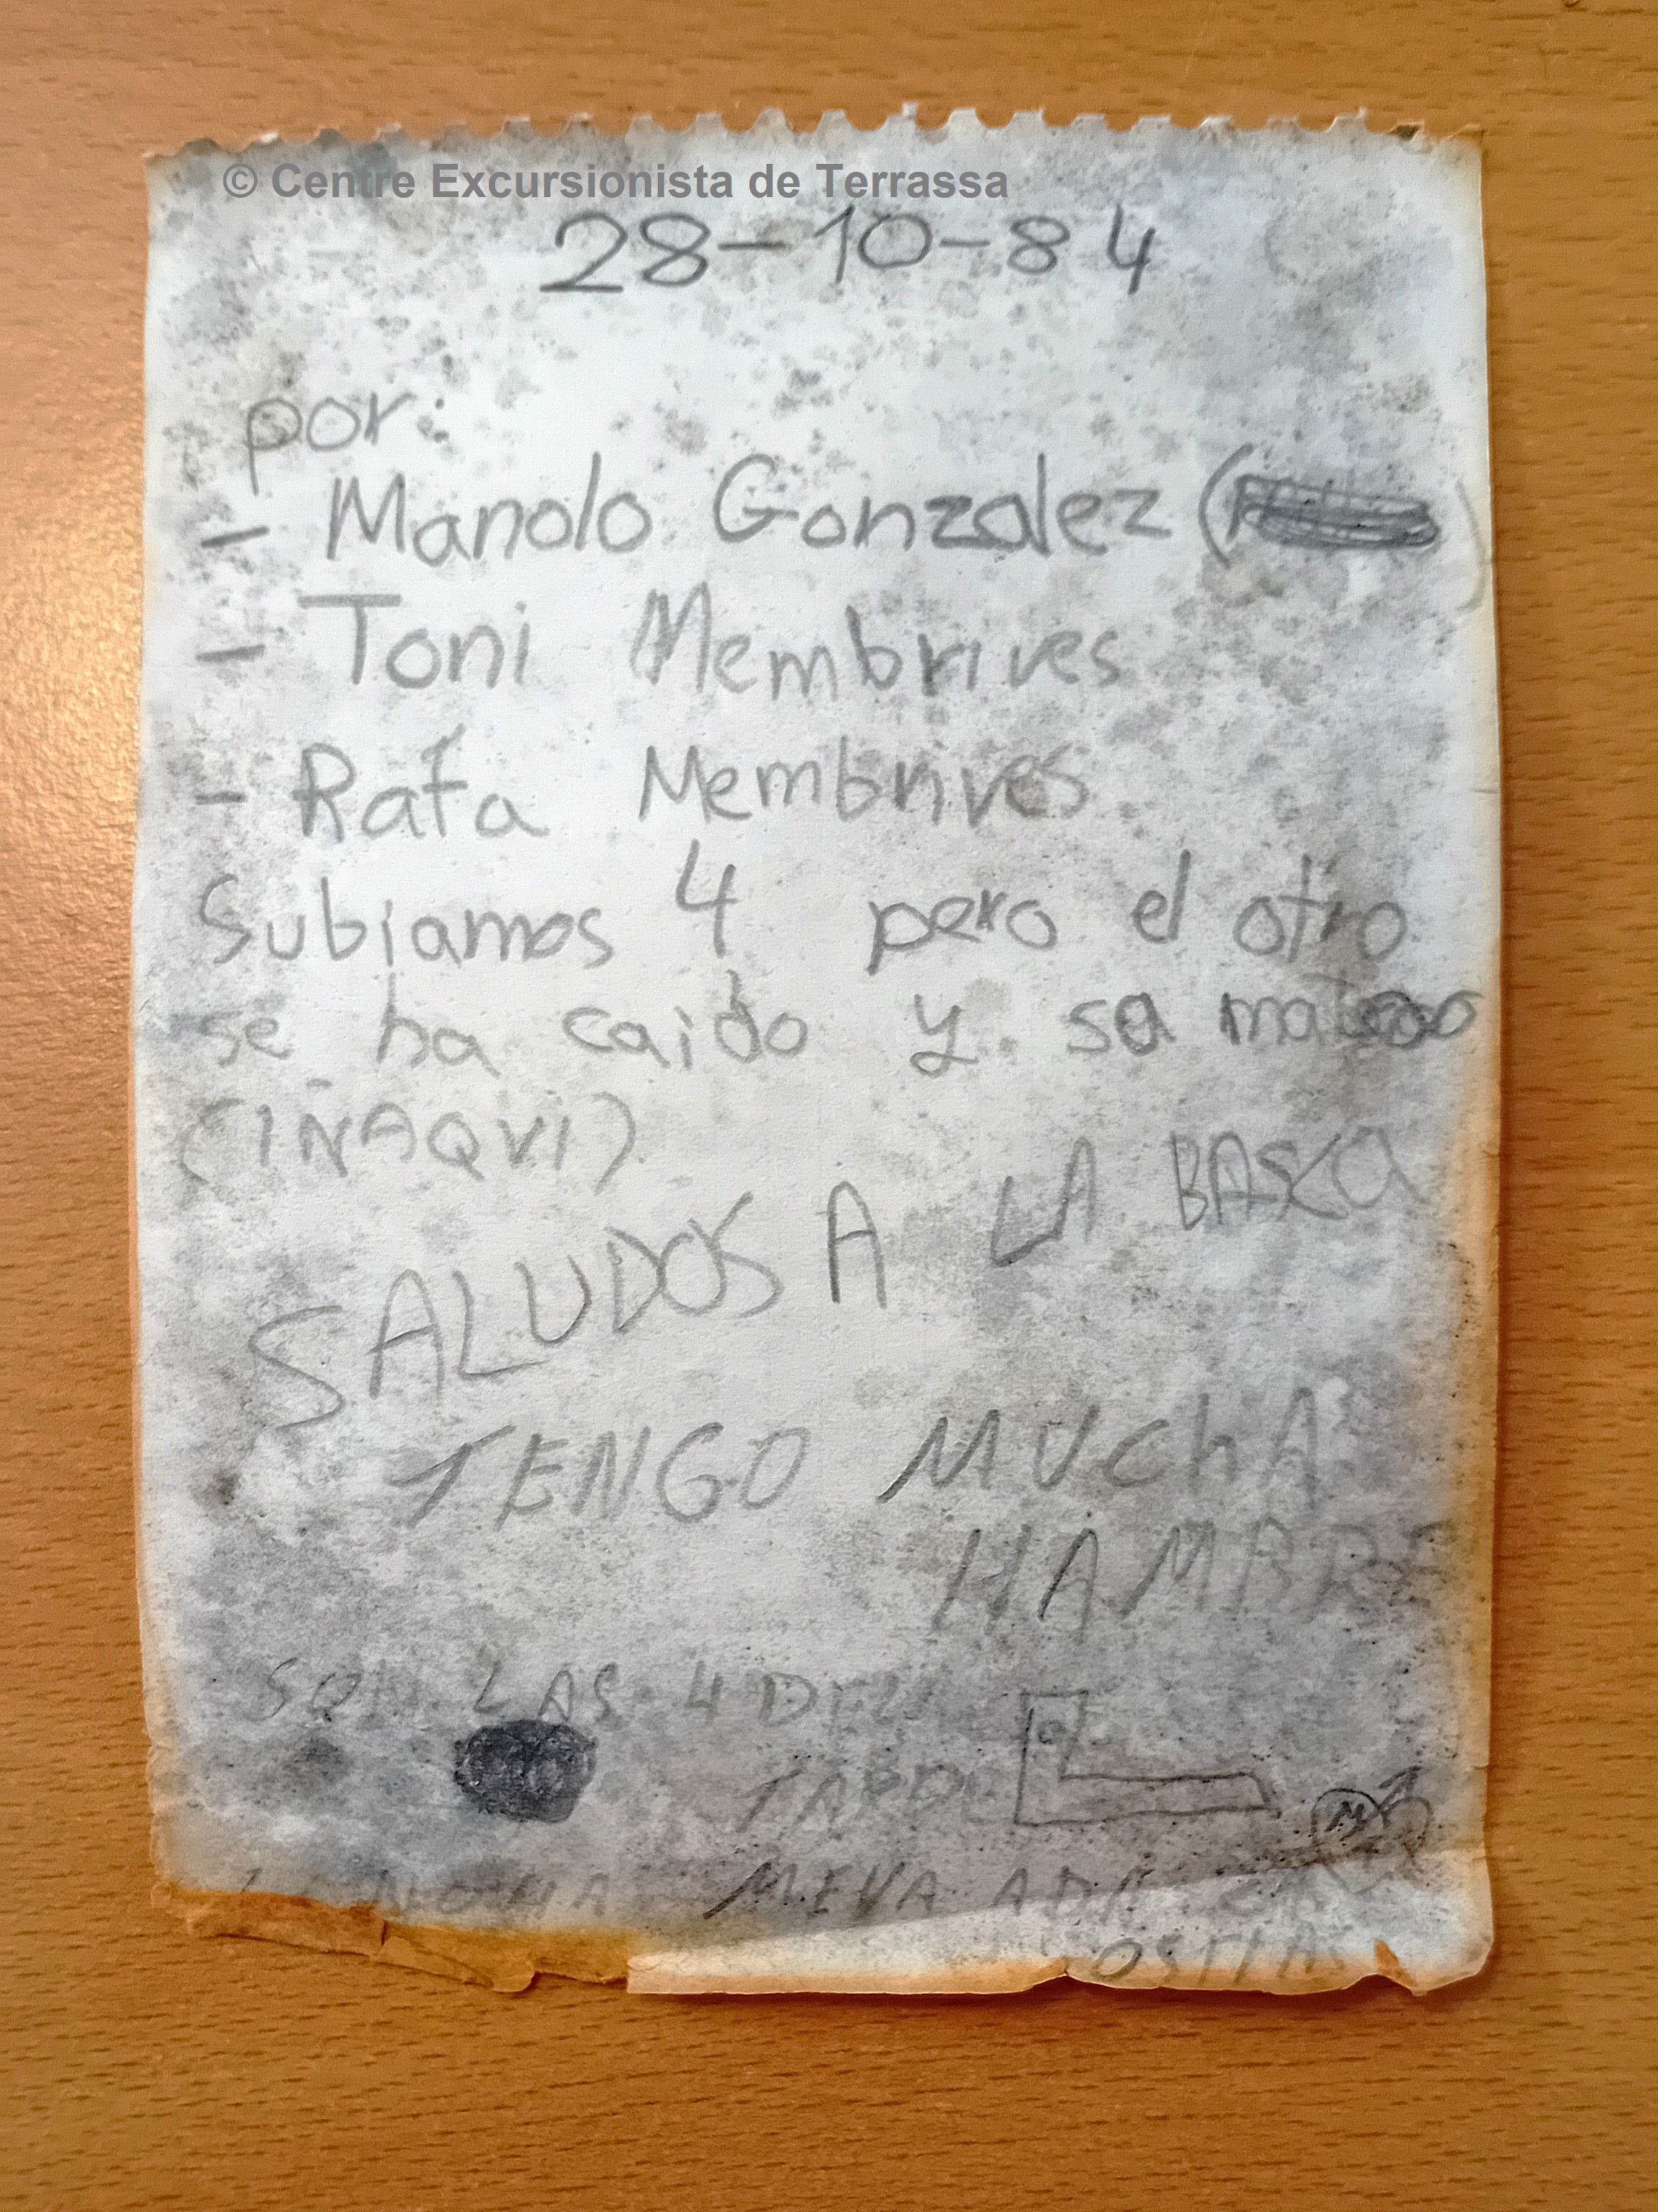 © Centre Excursionista de Terrassa
28-10-84
por:
- Manolo Gonzalez (
- Toni Membrives
- Rafa Membrives
Subiamos 4 pero el otro
se ha caido y sa matado
(IÑAQVI)
SALUDOS A LA BASCA
TENGO MUCHA
HAMBRE
SON LAS 4 DE LA
TARDE
MI NOVIA ME VA A DAR DE
OSTIAS